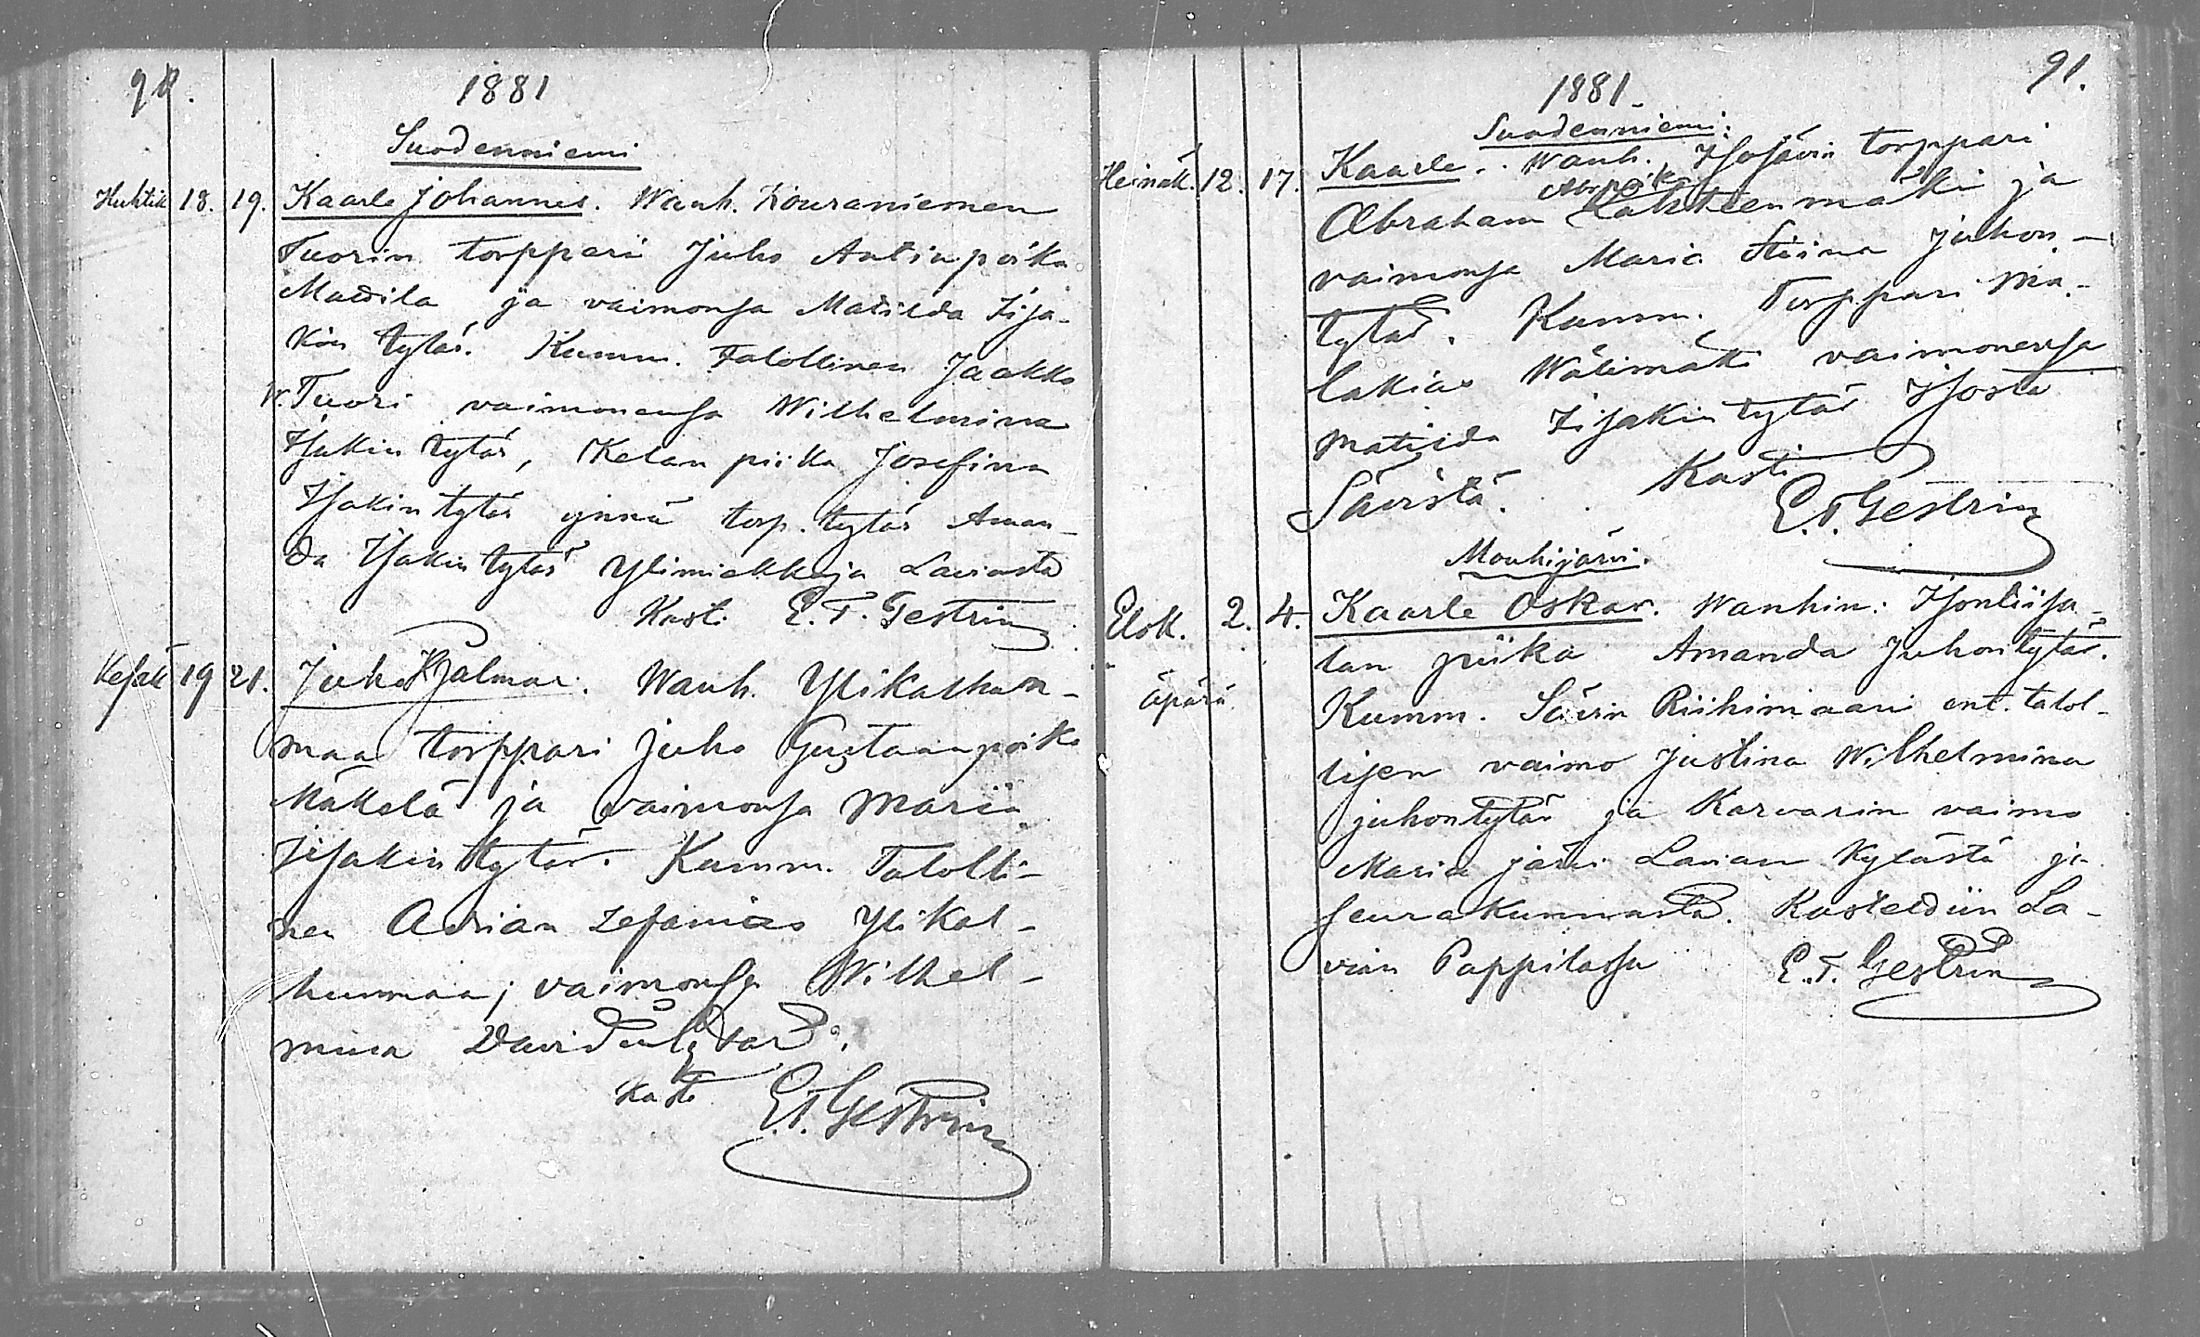 90.
1881
Suodenniemi
Huhtik 18. 19. Kaarle Johannes. Wanh. Kouraniemen
Tuorin torppari Juho Antinpoika
Mattila ja vaimonsa Matilda Iisa-
kin tytär. Kumm. Talollinen Jaakko
W. Tuori vaimonensa Wilhelmina
Isakin tytär, Kelan piika Josefina
Isakin tytär ynnä torp. tytär Aman-
da Isakin tytär Laviasta
Kast. E. F. Gestrin
Kesäk 19 21. Juho Hjalmar. Wanh. Ylikalhun-
maa torppari Juho Gustaanpoika
Mäkelä ja vaimonsa Maria
Iisakin tytär. Kumm. Talolli-
nen Adrian Zefanias Ylikal-
hunmaa; vaimonsa Wilhel-
mina
Kast. E. F. Gestrin
91.
1881
Suodenniemi:
Heinäk. 12. 17. Kaarle. Wanh. Isosävin torppari
Abraham Lähteenmäki ja
vaimonsa Maria Stiina Juhon-
tytär. Kumm. Torppari Ma-
lakias Wälimäki vaimonensa
Matilda Iisakin tytär Isosta
Sävistä. Kasti
E. F. Gestrin
Mouhijärvi.
Elok. 2. 4. Kaarle Oskar. Wanhin:
lan piika Amanda Juhontytär.
äpärä. Kumm. Sävin Riihimaan ent. talol-
lisen vaimo Justina Wilhelmina
Juhontytär ja Karvarin vaimo
Maria Järvi Lavian kylästä ja
seurakunnasta. Kastettiin La-
vian Pappilassa E. F. Gestrin